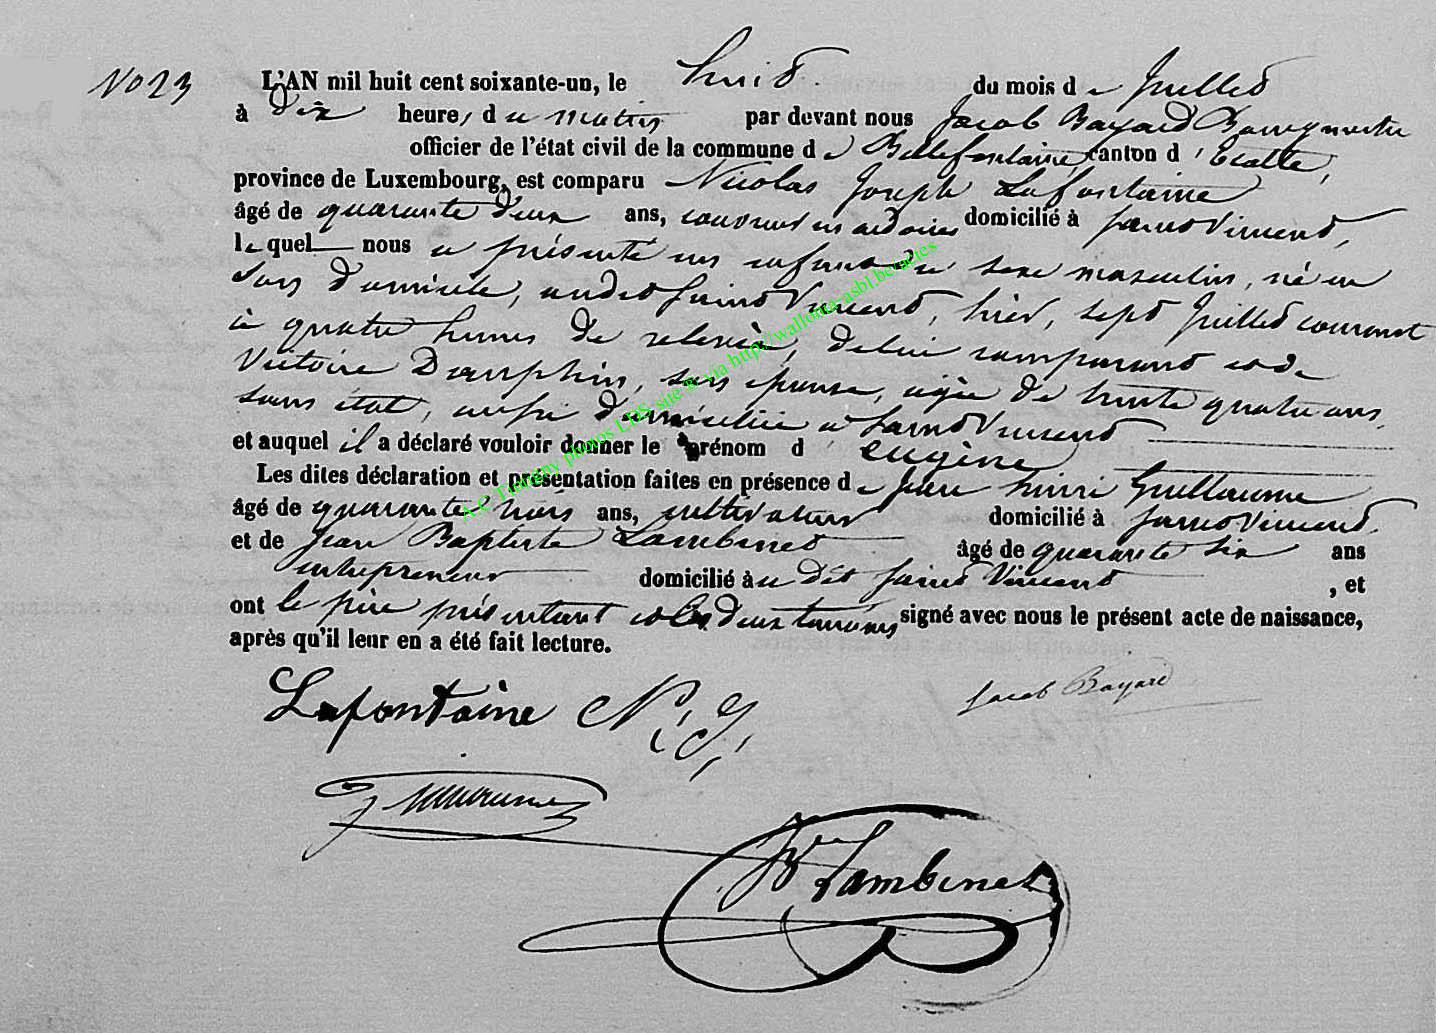 No 23 L'AN mil huit cent soixante-un, le huit du mois de Juillet
à dix heures du matin par devant nous Jacob Bayard Bourgmestre
officier de l'état civil de la commune de Bellefontaine, canton d'Etalle,
province de Luxembourg, est comparu Nicolas Joseph Lafontaine
âgé de quarante deux ans, couvreur en ardoises domicilié à Saint Vincent,
lequel nous a présenté un enfant du sexe masculin, né en
son domicile, audit Saint Vincent, hier, sept Juillet courant
à quatre heures de relevée, de lui comparant et de
Victoire Dauphin, son épouse, agée de trente quatre ans,
sans état, aussi domiciliée à Saint Vincent
et auquel il a déclaré vouloir donner le prénom d eugène
Les dites déclaration et présentation faites en présence de Jean henri Guillaume
âgé de quarante trois ans, cultivateur domicilié à Saint Vincent,
et de Jean Baptiste Lambinet âgé de quarante six ans
entrepreneur domicilié à u dit Saint Vincent, et
ont le père présentant et les deux témoins signé avec nous le présent acte de naissance,
après qu'il leur en a été fait lecture.
Lafontaine N. J. Jacob Bayard
Lambinet
A.C Tintigny photos LDS site & via http://wallonia-asbl.be/actes